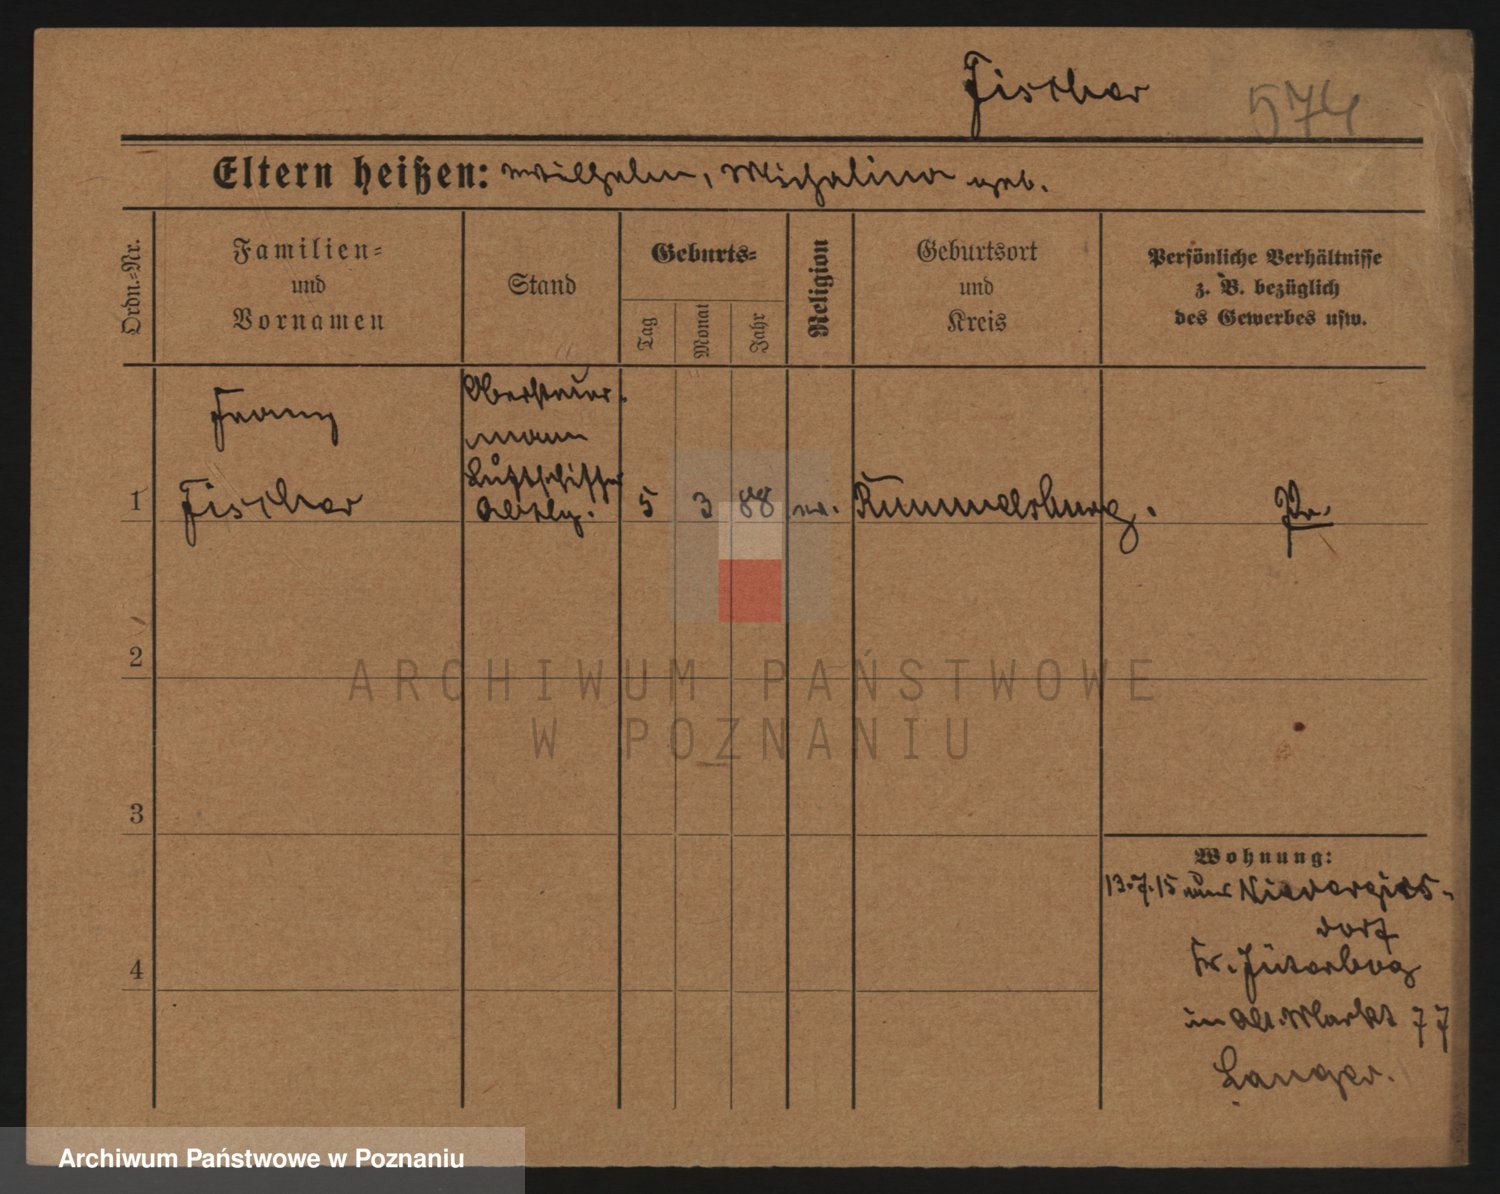 Fischer 574
Eltern heißen: Wilhelm, Michalina geb.
Ordn.-Nr.
Familien-
und
Vornamen
Stand
Geburts-
Tag
Monat
Jahr
Religion
Geburtsort
und
Kreis
Persönliche Verhältnisse
z. B. bezüglich
des Gewerbes usw.
1
Franz
Fischer
Obersteuer-
mann
Luftschiffer
Abtlg.
5 3 88 ev. Rummelsburg. Pr.
2
3
4
Wohnung:
13.7.15 aus Niedergörs-
dorf
Kr. Jüterbog
in Alt. Markt 77
Langer.
ARCHIWUM PAŃSTWOWE
W POZNANIU
Archiwum Państwowe w Poznaniu